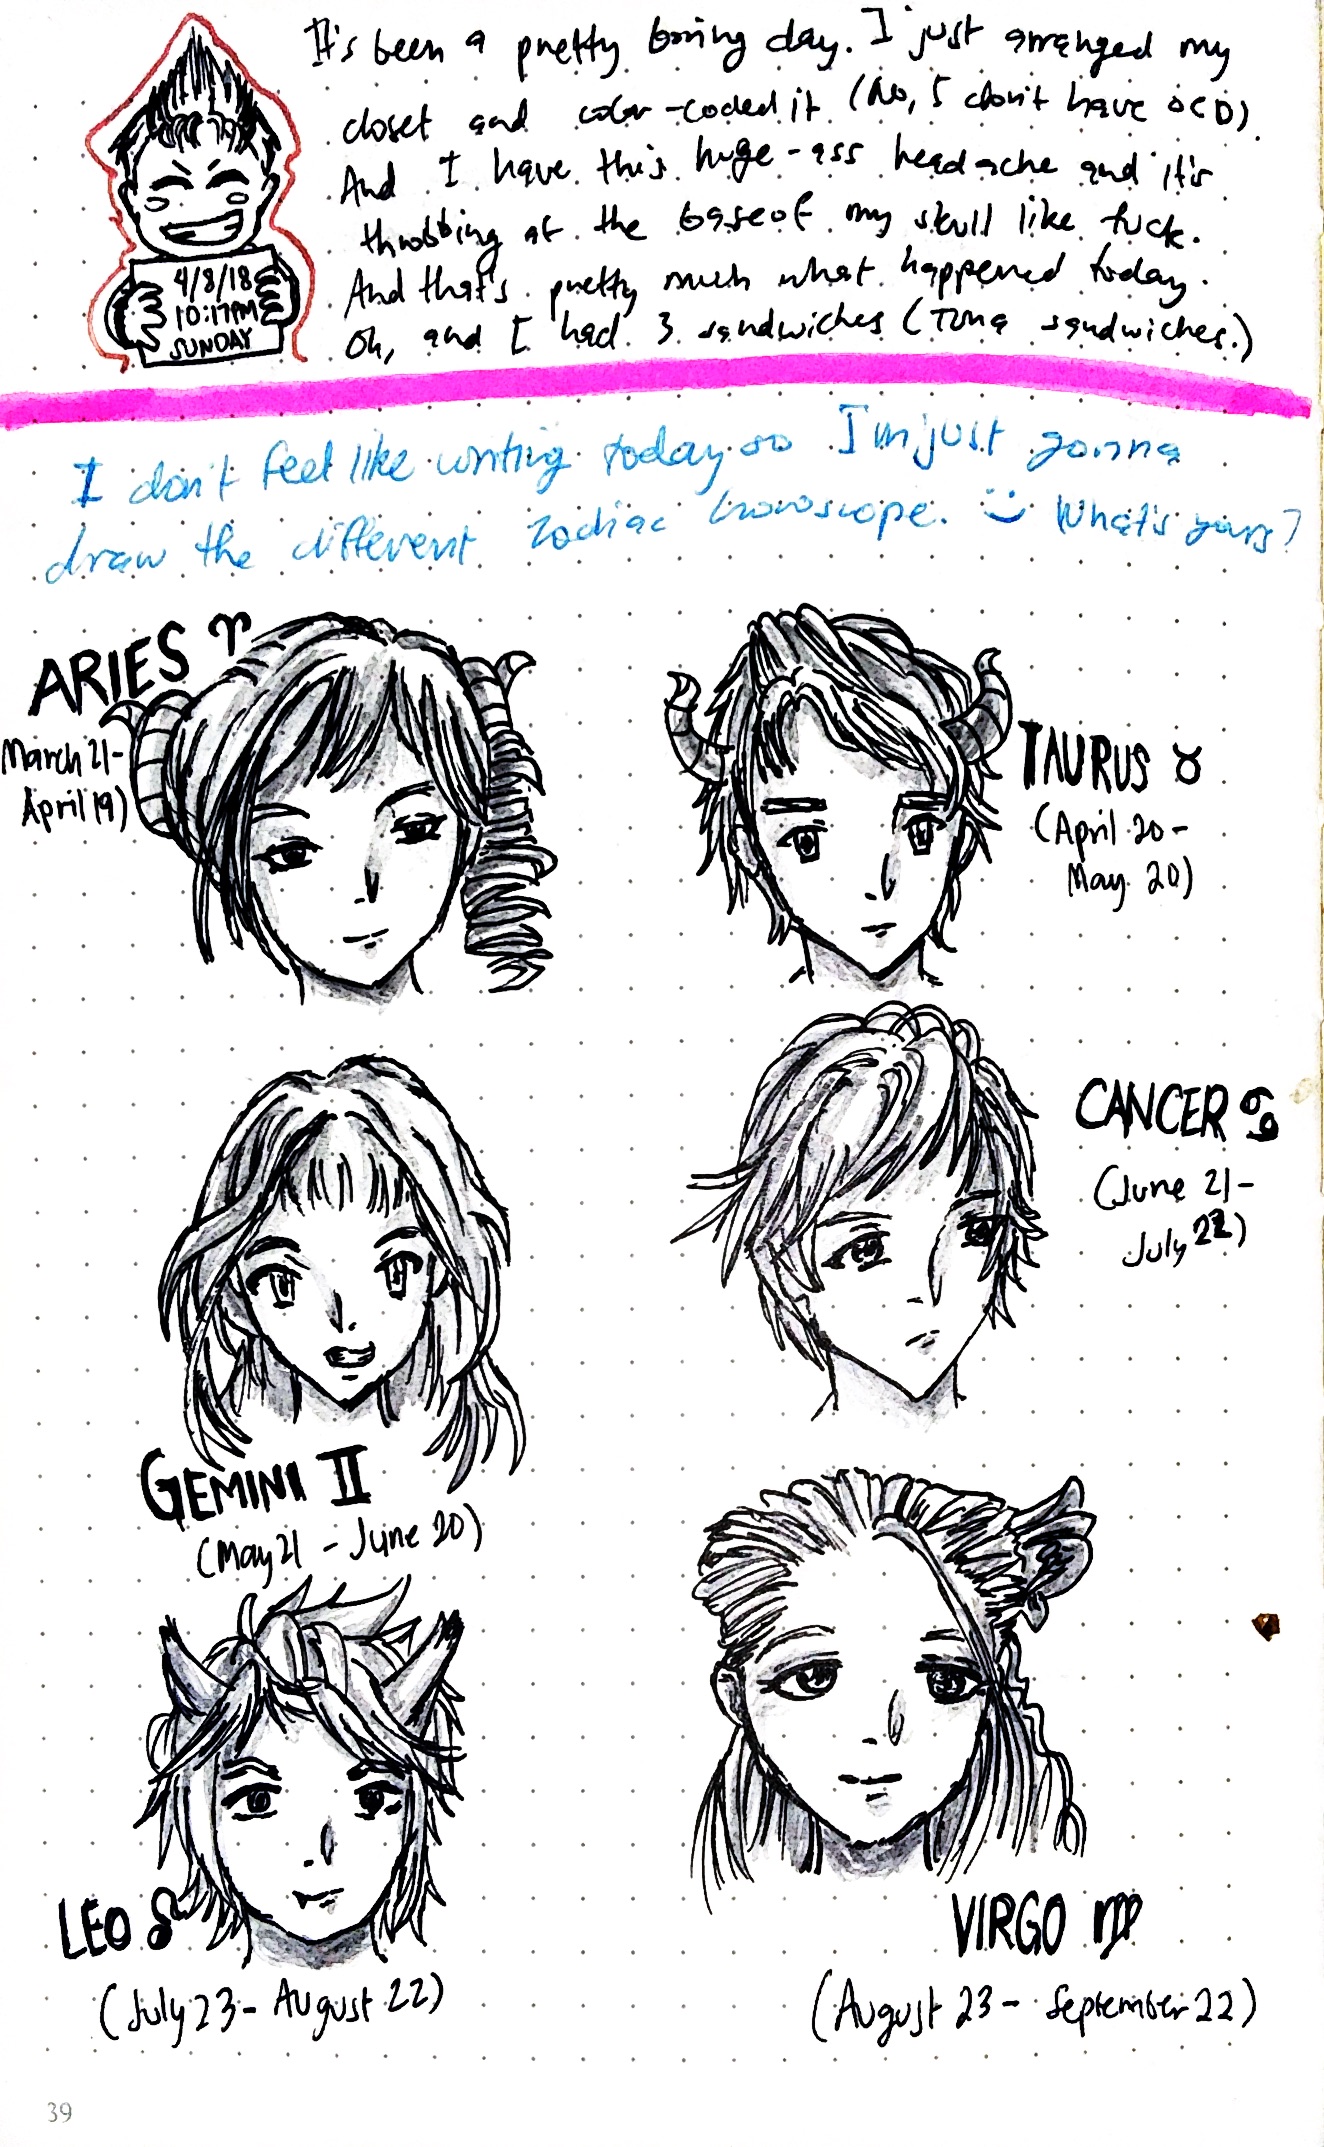 It's been a pretty boring day. I just arranged my
closet and color-coded it (No, I don't have OCD).
And I have this huge-ass headache and it's
throbbing at the base of my skull like fuck.
And that's pretty much what happened today.
Oh, and I had 3 sandwiches (Tuna sandwiches.)
4/8/18
10:17PM
SUNDAY
I don't feel like writing today so I'm just gonna
draw the different zodiac horoscope. What's yours?
ARIES ♈
(March 21-
April 19)
TAURUS ♉
(April 20-
May 20)
GEMINI ♊
(May 21 - June 20)
CANCER ♋
(June 21-
July 22)
LEO ♌
(July 23 - August 22)
VIRGO ♍
(August 23 - September 22)
39